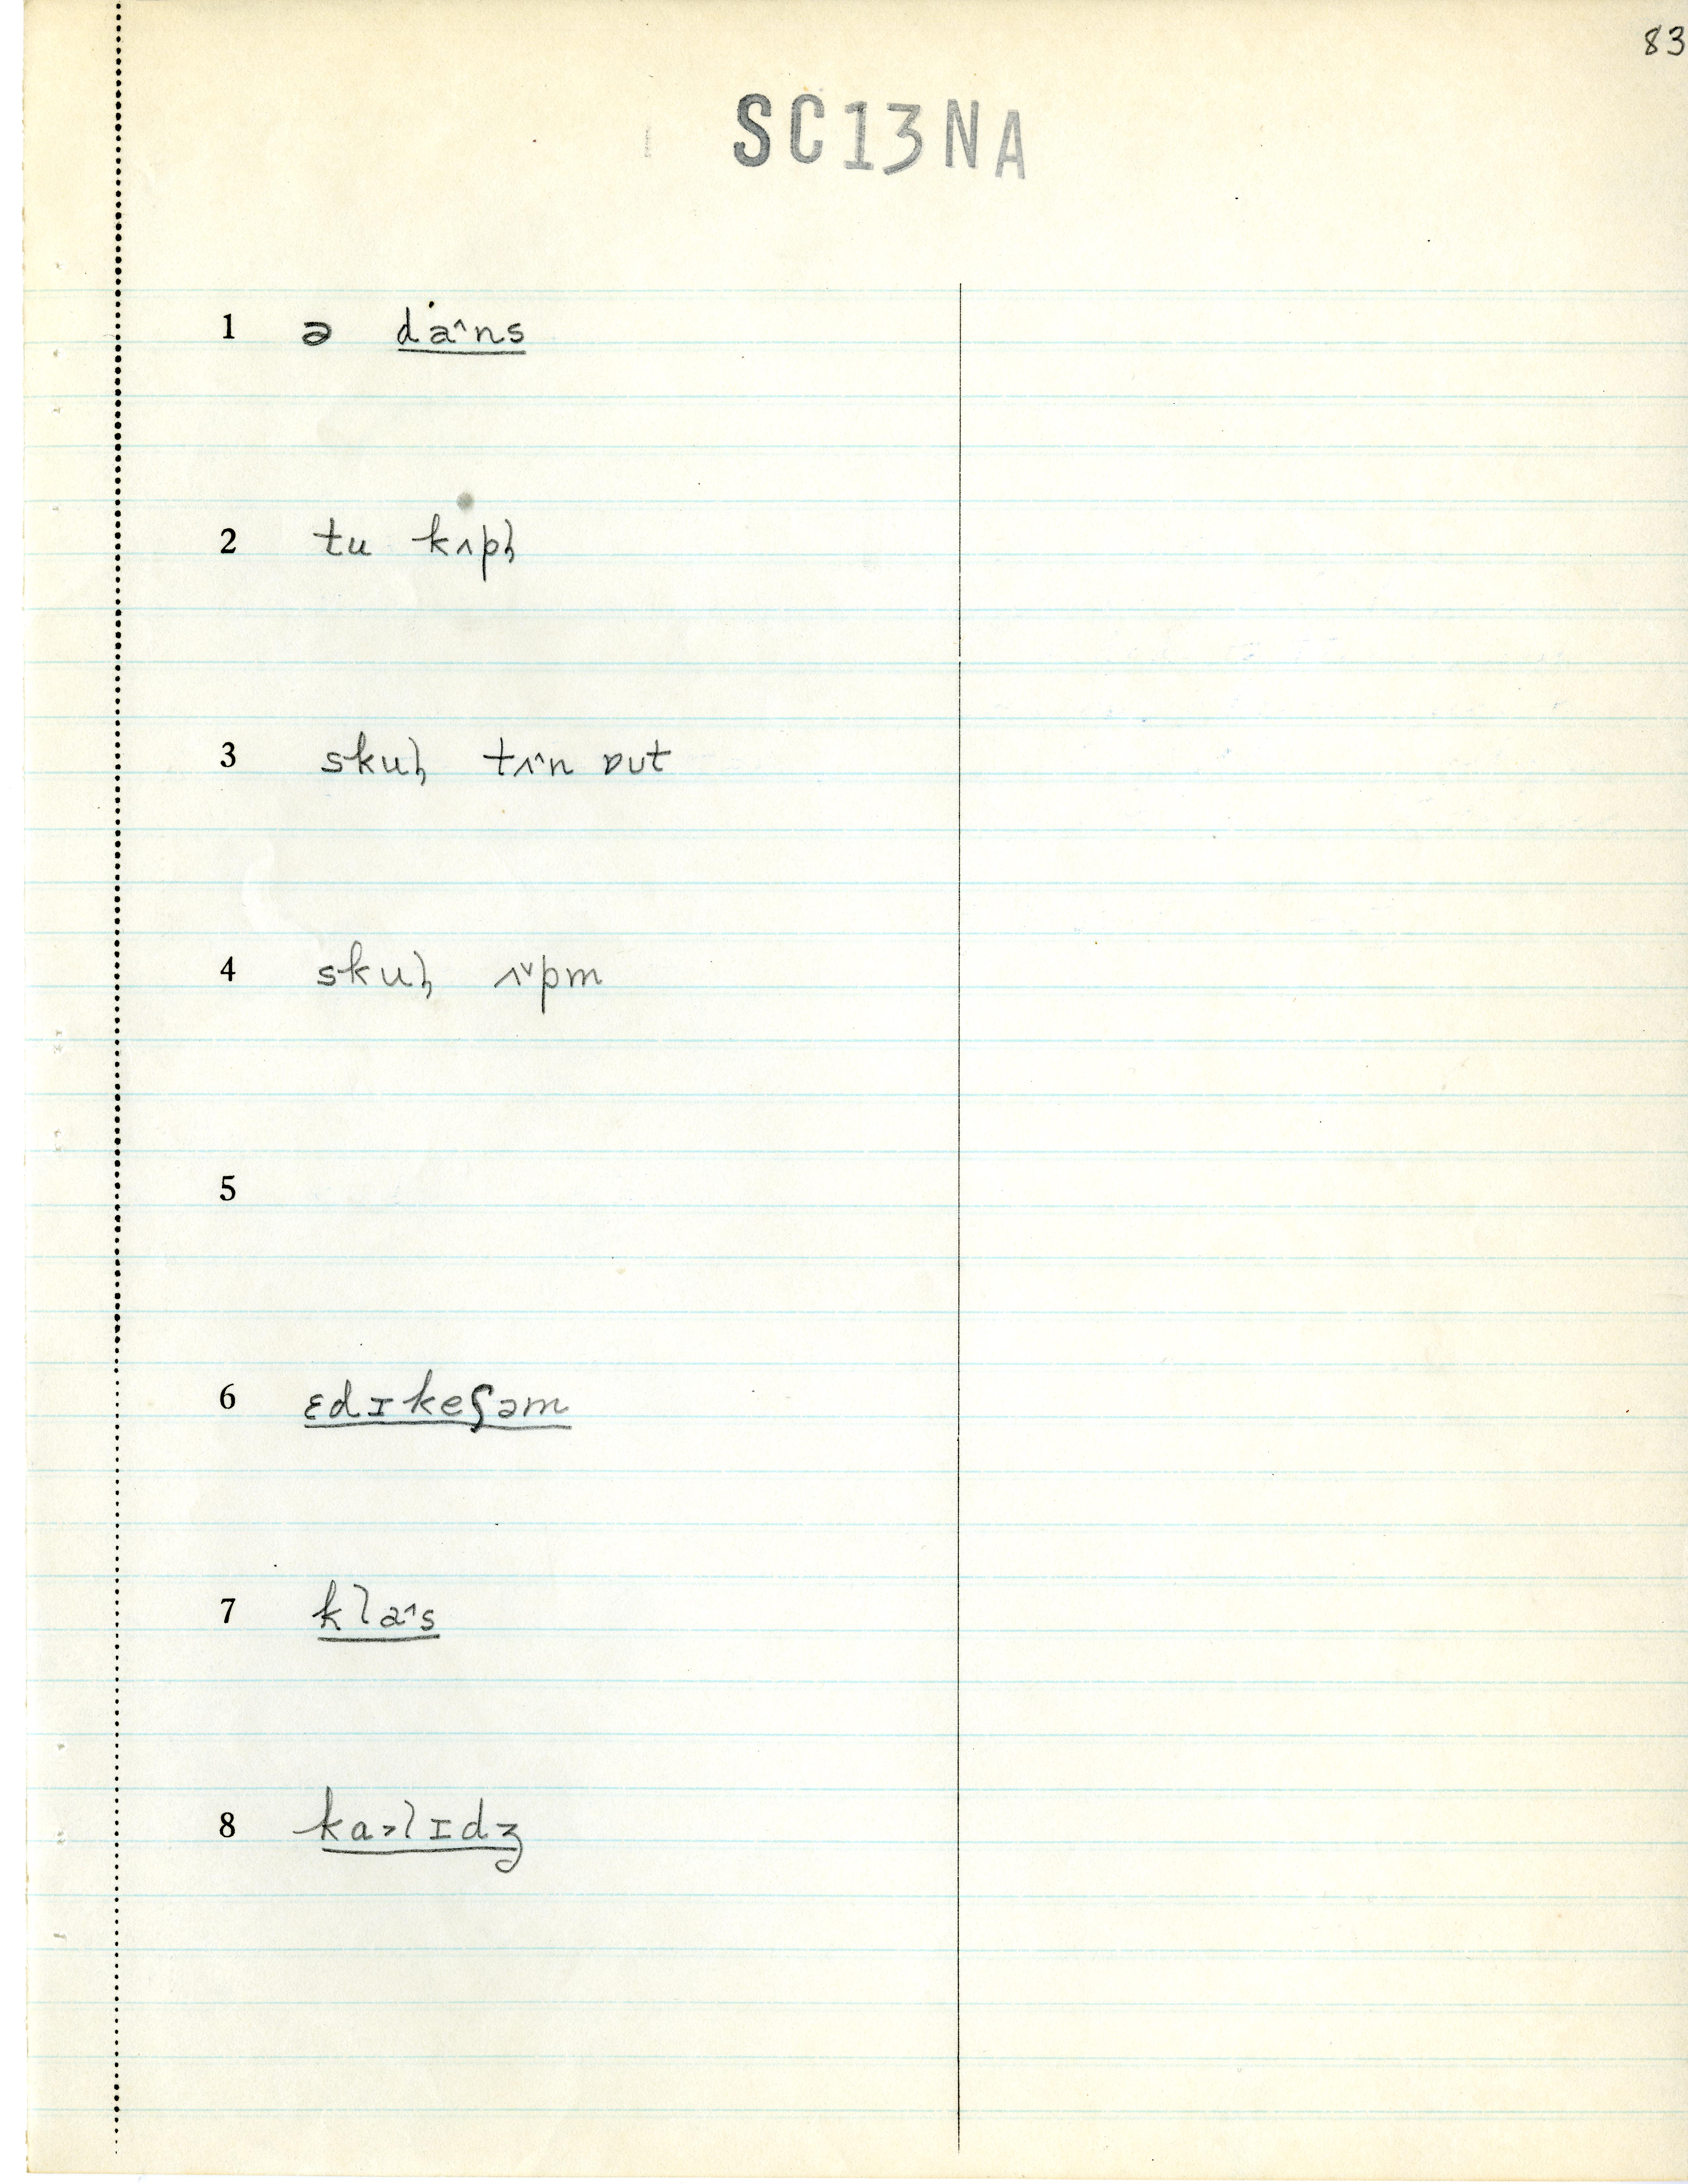 83
SC13NA
1 ə da˄ns
2 tu kʌpɫ
3 skuɫ tʌ˄n ɒut
4 skuɫ ʌ˅pm
5
6 ɛdɪkeʃəm
7 kla˄s
8 ka˃lɪdʒ